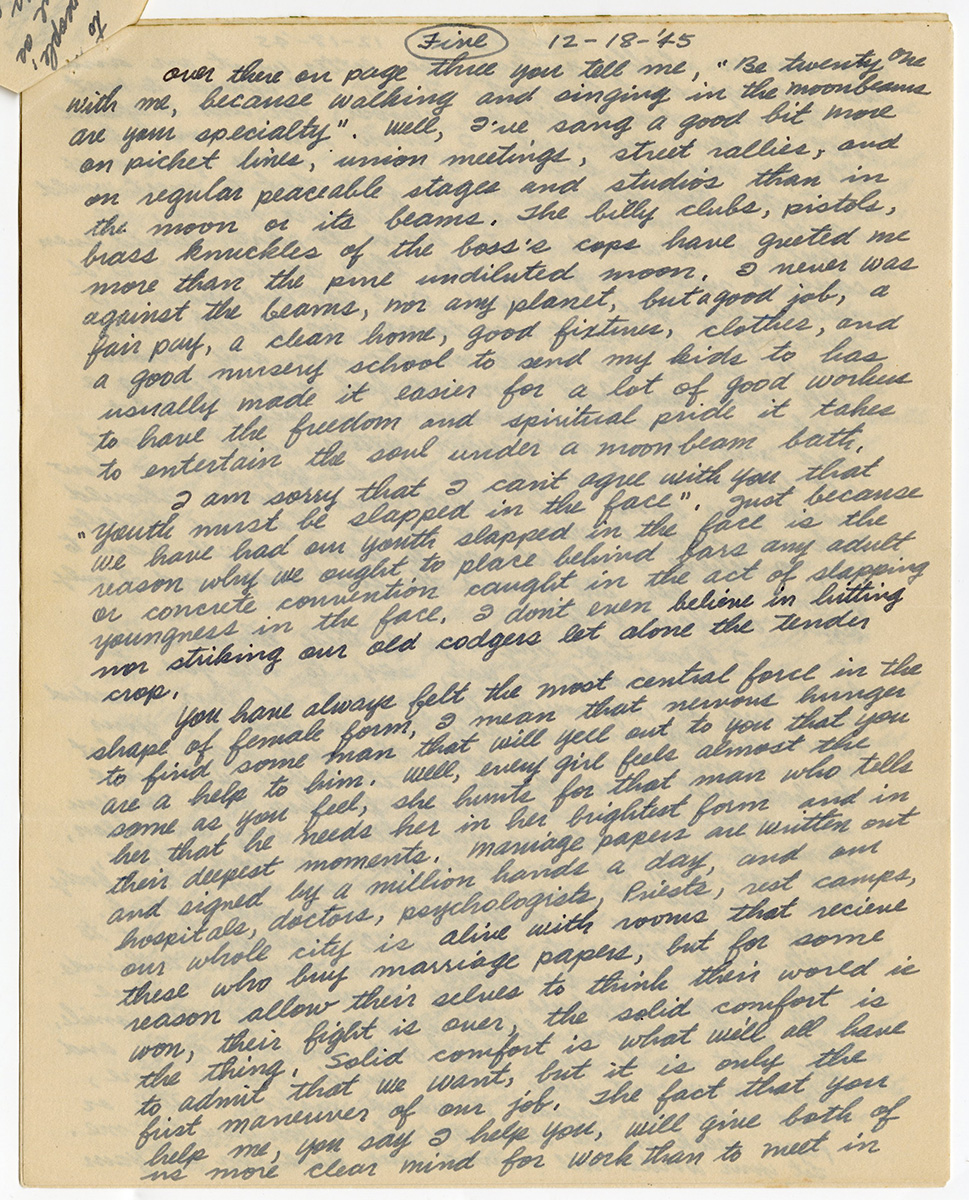 to
people'
Five 12-18-45
over there on page three you tell me, "Be twenty one
with me, because walking and singing in the moonbeams
are your specialty". Well, I've sang a good bit more
on picket lines, union meetings, street rallies, and
on regular peaceable stages and studios than in
the moon or its beams. The billy clubs, pistols,
brass knuckles of the boss's cops have greeted me
more than the pure undiluted moon. I never was
against the beams, nor any planet, but a good job, a
fair pay, a clean home, good fixtures, clothes, and
a good nursery school to send my kids to has
usually made it easier for a lot of good workers
to have the freedom and spiritual pride it takes
to entertain the soul under a moonbeam bath.
I am sorry that I can't agree with you that
"youth must be slapped in the face". Just because
we have had our youth slapped in the face is the
reason why we ought to place behind bars any adult
or concrete convention caught in the act of slapping
youngness in the face. I don't even believe in hitting
nor striking our old codgers let alone the tender
crop.
You have always felt the most central force in the
shape of female form, I mean that nervous hunger
to find some man that will yell out to you that you
are a help to him. Well, every girl feels almost the
same as you feel, she hunts for that man who tells
her that he needs her in her brightest form and in
their deepest moments. Marriage papers are written out
and signed by a million hands a day, and our
hospitals, doctors, psychologists, Priests, rest camps,
our whole city is alive with rooms that recieve
these who buy marriage papers, but for some
reason allow their selves to think their world is
won, their fight is over, the solid comfort is
the thing. Solid comfort is what we'll all have
to admit that we want, but it is only the
first maneuver of our job. The fact that you
help me, you say I help you, will give both of
us more clear mind for work than to meet in